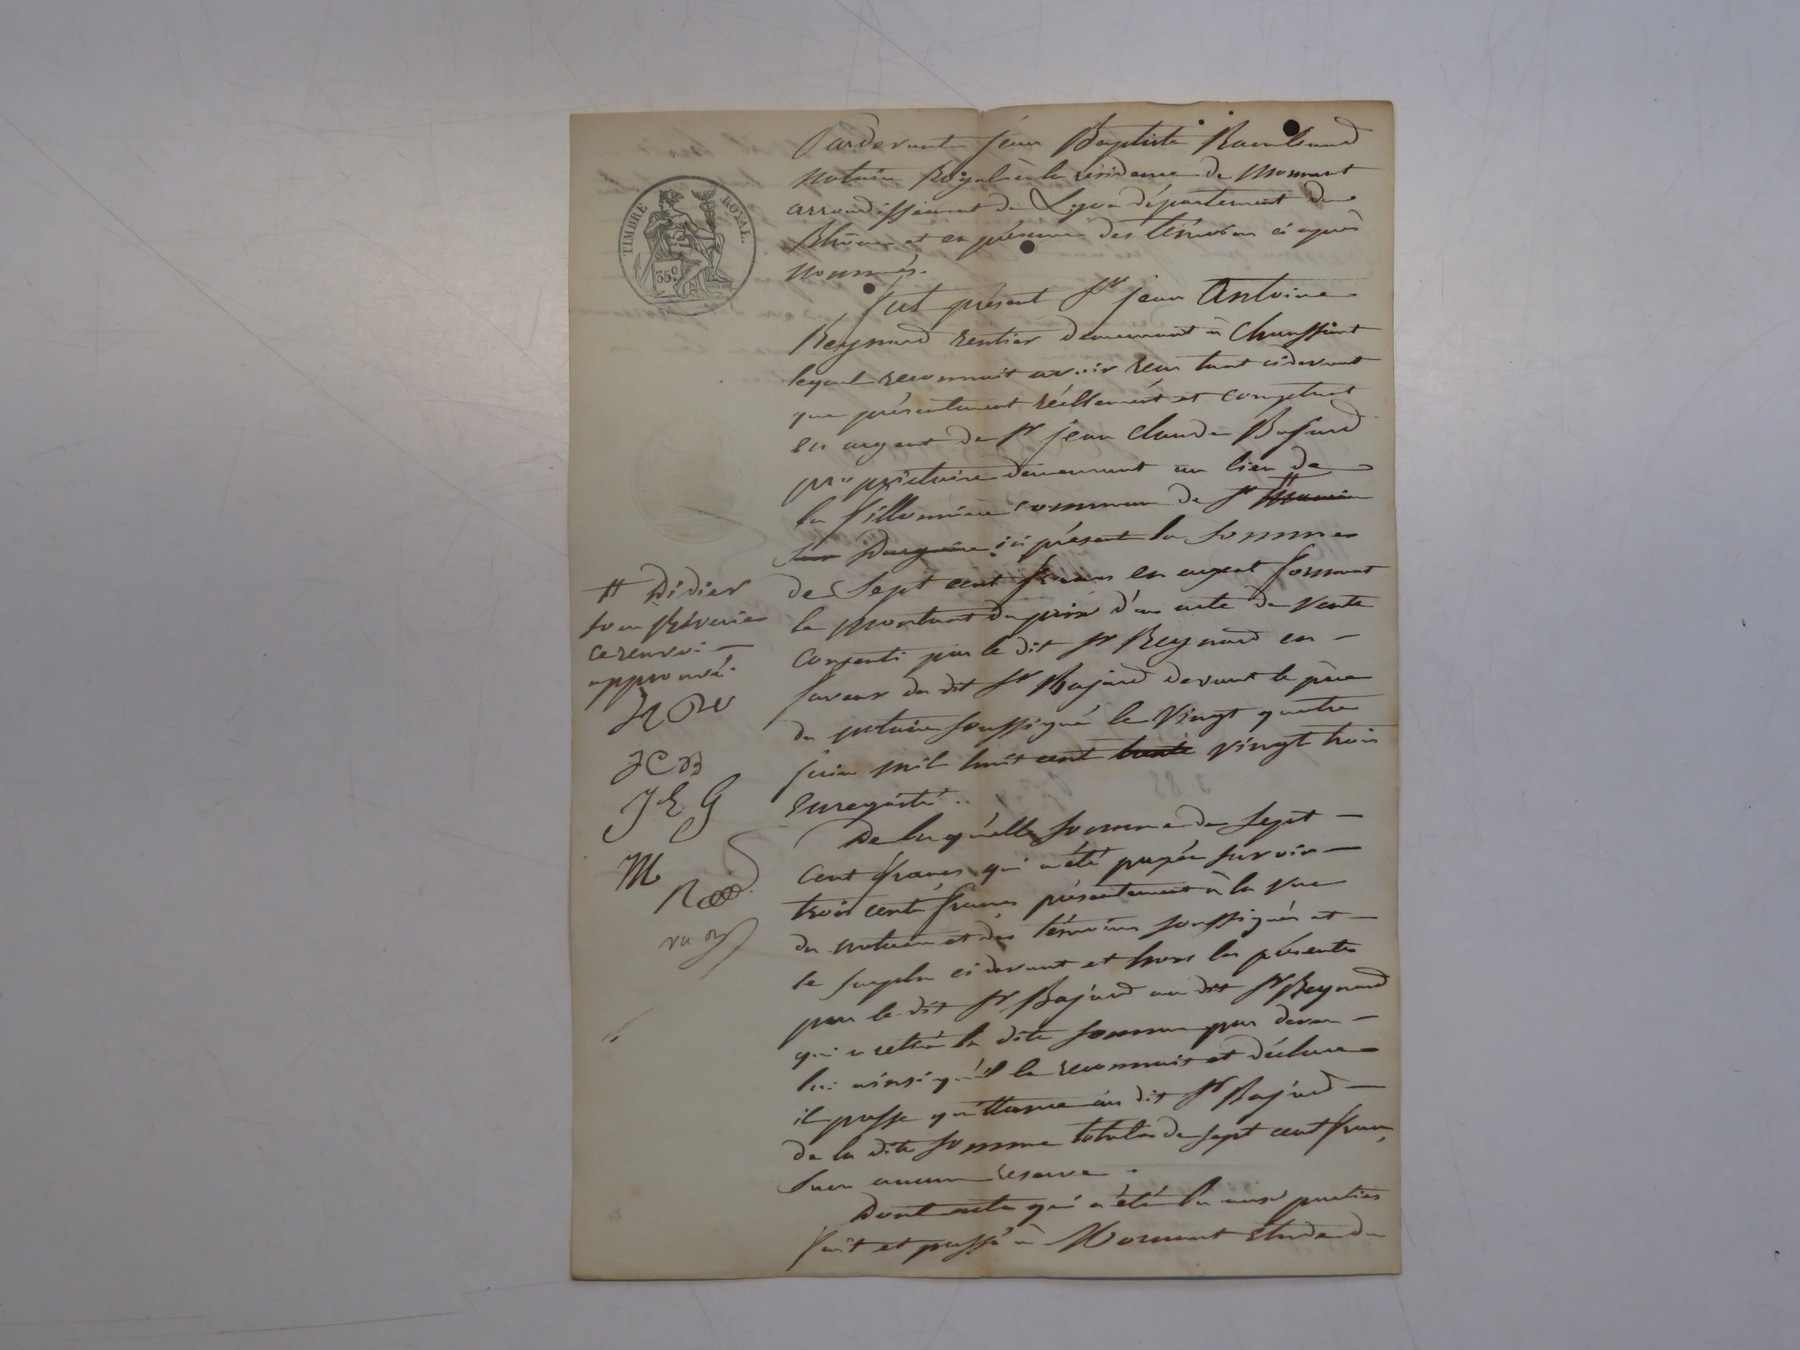 TIMBRE ROYAL.
35c.
Pardevant jean Baptiste Rambaud
notaire Royal à la résidence de Mornant
arrondissement de Lyon département du
Rhône et en présence des témoins ci après
nommés.
fut présent Sr jean Antoine
Reynard rentier demeurant à Chaussant
lequel reconnait avoir reçu tant cidevant
que présentement réellement et comptant
en argent de Sr jean Claude Bajard
propriétaire demeurant au lieu de
la fillonnière commune de St
ici présent la somme
de Sept cent francs en argent formant
le montant du prix d'un acte de vente
consenti par le dit Sr Reynard en
faveur du dit Sr Bajard devant le père
du notaire soussigné le Vingt quatre
juin mil huit cent trente vingt trois
Enregistré.
De laquelle somme de sept
cent francs qui a été payée savoir
trois cents francs présentement à la vue
du notaire et des témoins soussignés et
le surplu ci devant et hors les présentes
par le dit Sr Bajard au dit Sr Reynard
qui a retiré la dite somme par devers
lui ainsi qu'il le reconnait et déclare
il passe quittance au dit Sr Bajard
de la dite somme totale de sept cent francs
sans aucune reserve.
Dont acte qui a été lu aux parties
fait et passé à Mornant étude du
# Didier
sous Riverie
ce renvoi
approuvé.
JCB
JEG
M